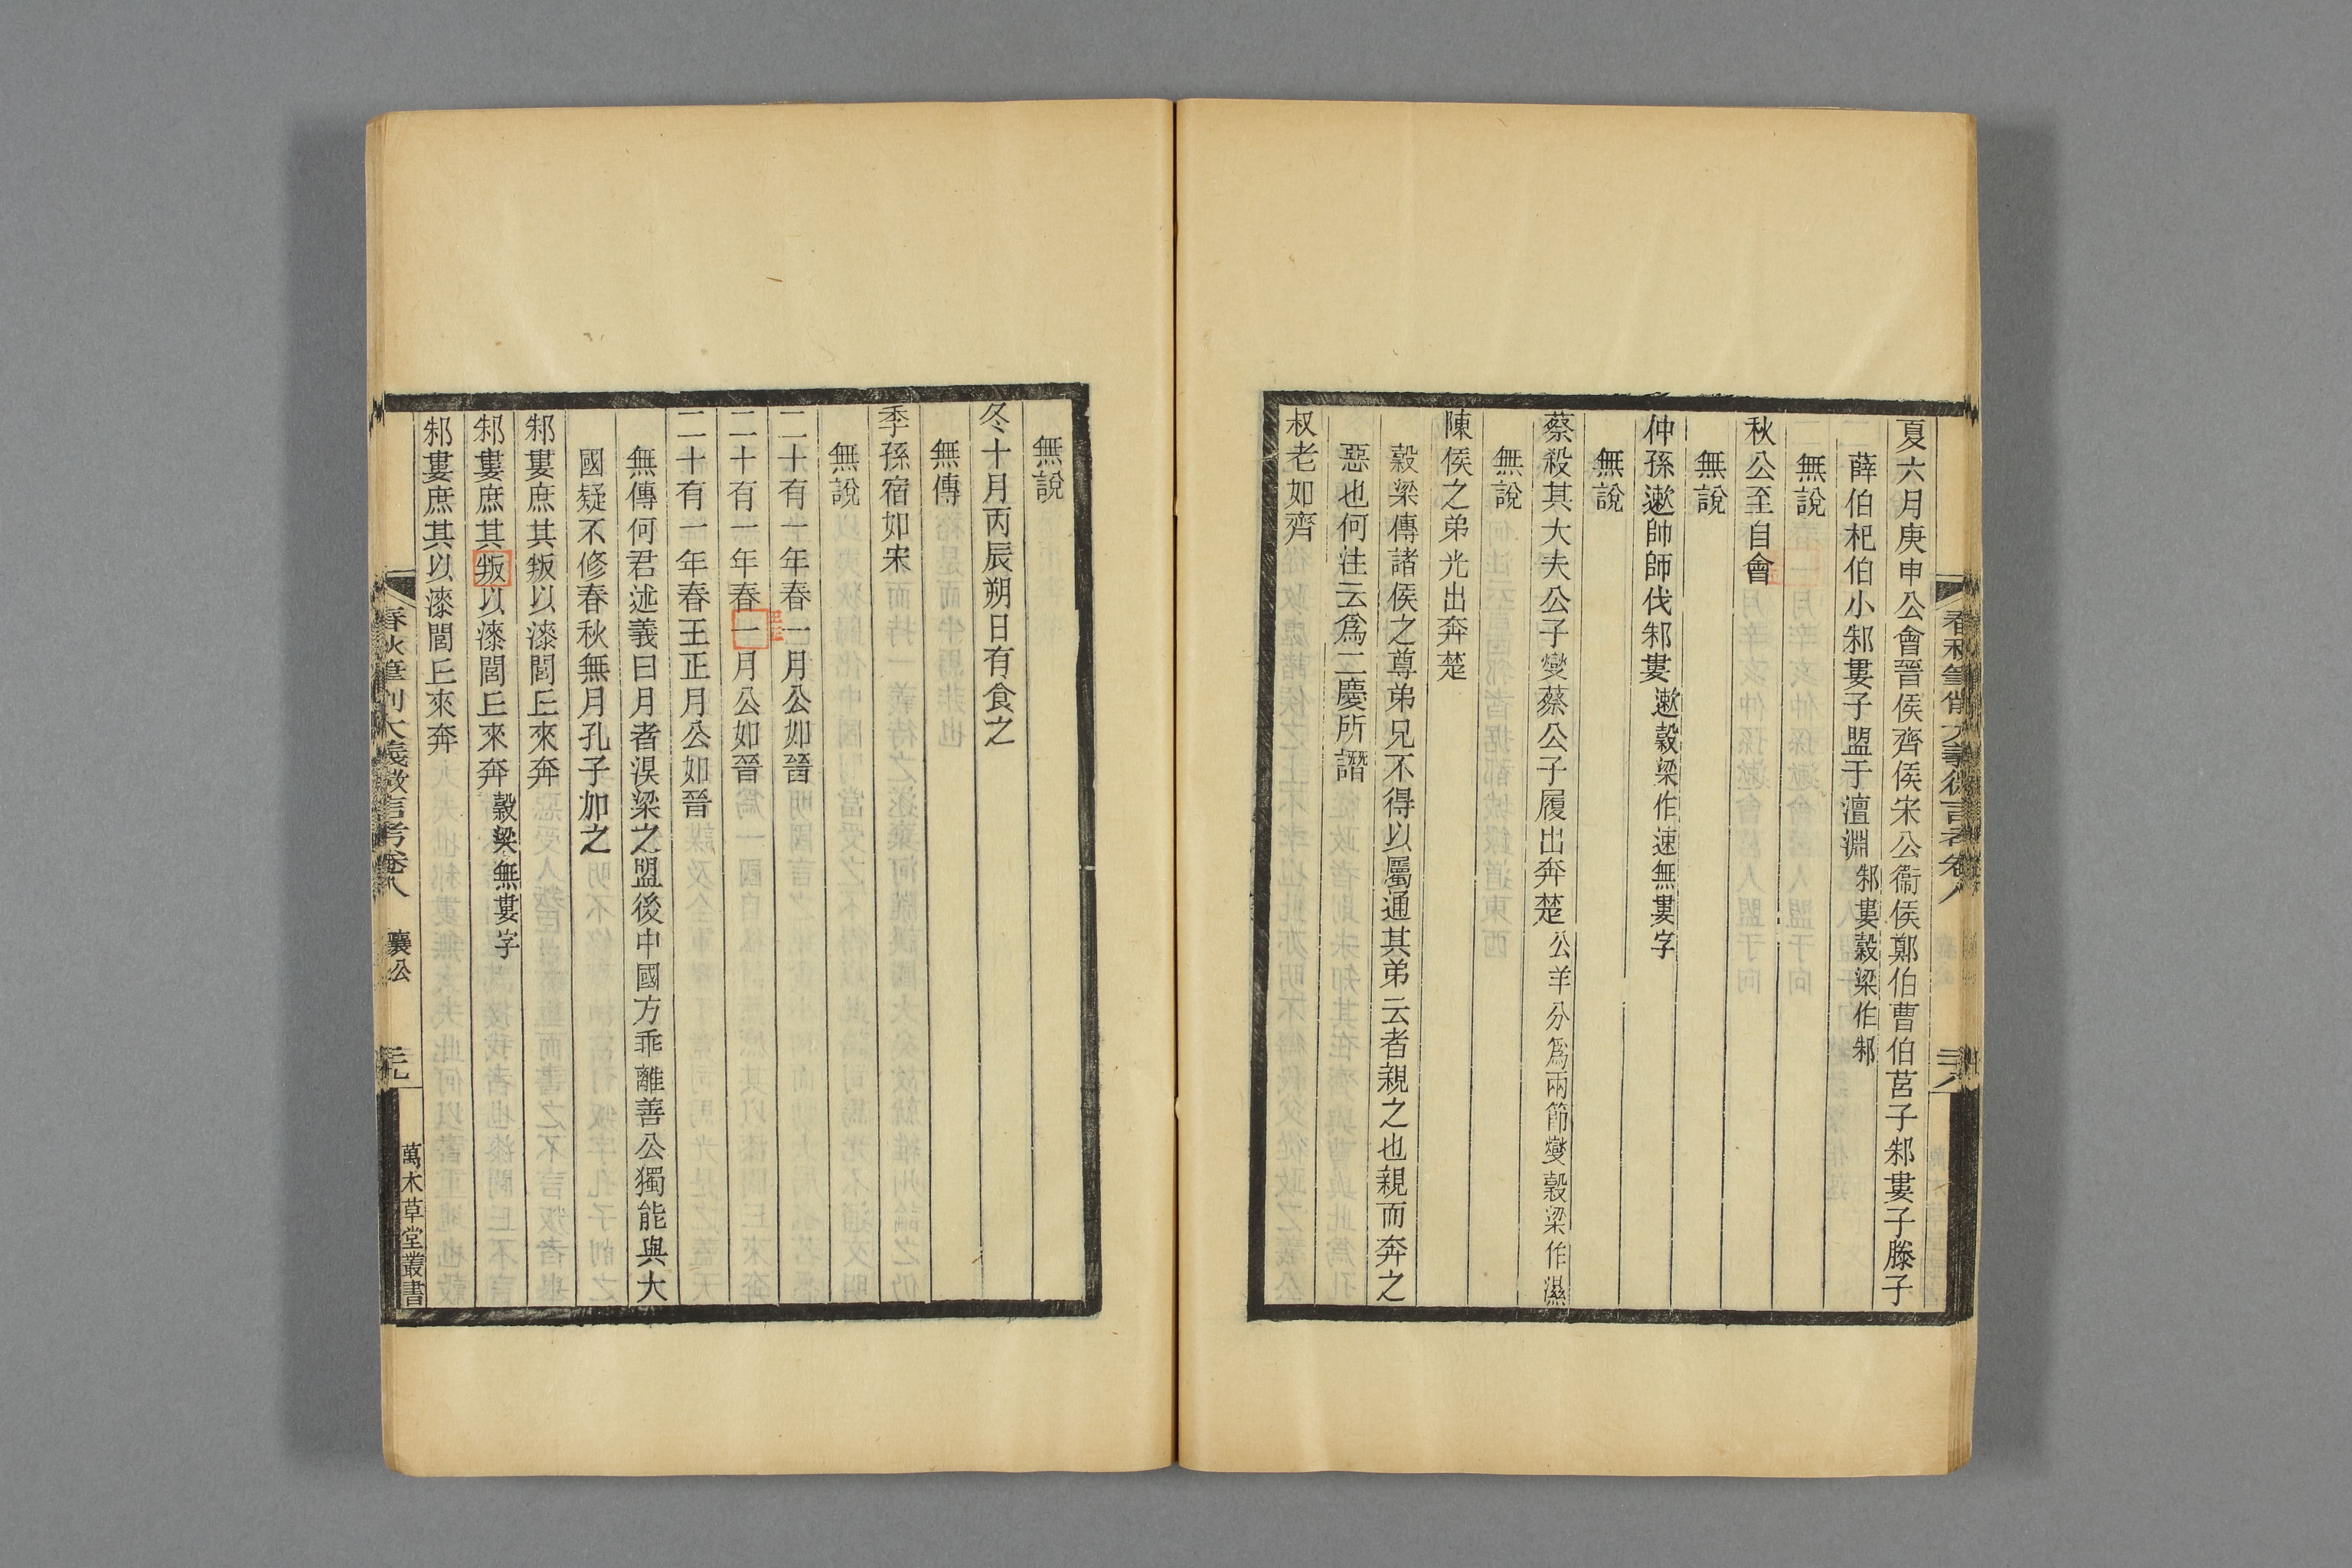 夏六月庚申公會晉侯齊侯宋公衞侯鄭伯曹伯莒子邾婁子滕子
薛伯杞伯小邾婁子盟于澶淵邾婁穀梁作邾
無說
秋公至自會
無說
仲孫遬帥師伐邾婁遬穀梁作速無婁字
無說
蔡殺其大夫公子燮蔡公子履出奔楚公羊分爲兩節燮穀梁作濕
無說
陳侯之弟光出奔楚
穀梁傳諸侯之尊弟兄不得以屬通其弟云者親之也親而奔之
惡也何注云爲二慶所譖
叔老如齊
無說
冬十月丙辰朔日有食之
無傳
季孫宿如宋
無說
二十有一年春一月公如晉
二十有一年春一月公如晉
王正
二十有一年春王正月公如晉
無傳何君述義曰月者湨梁之盟後中國方乖離善公獨能與大
國疑不修春秋無月孔子加之
邾婁庶其叛以漆閭丘來奔
邾婁庶其叛以漆閭丘來奔穀梁無婁字
邾婁庶其以漆閭丘來奔
春秋筆削大義微言考卷八 襄公 三九 萬木草堂叢書